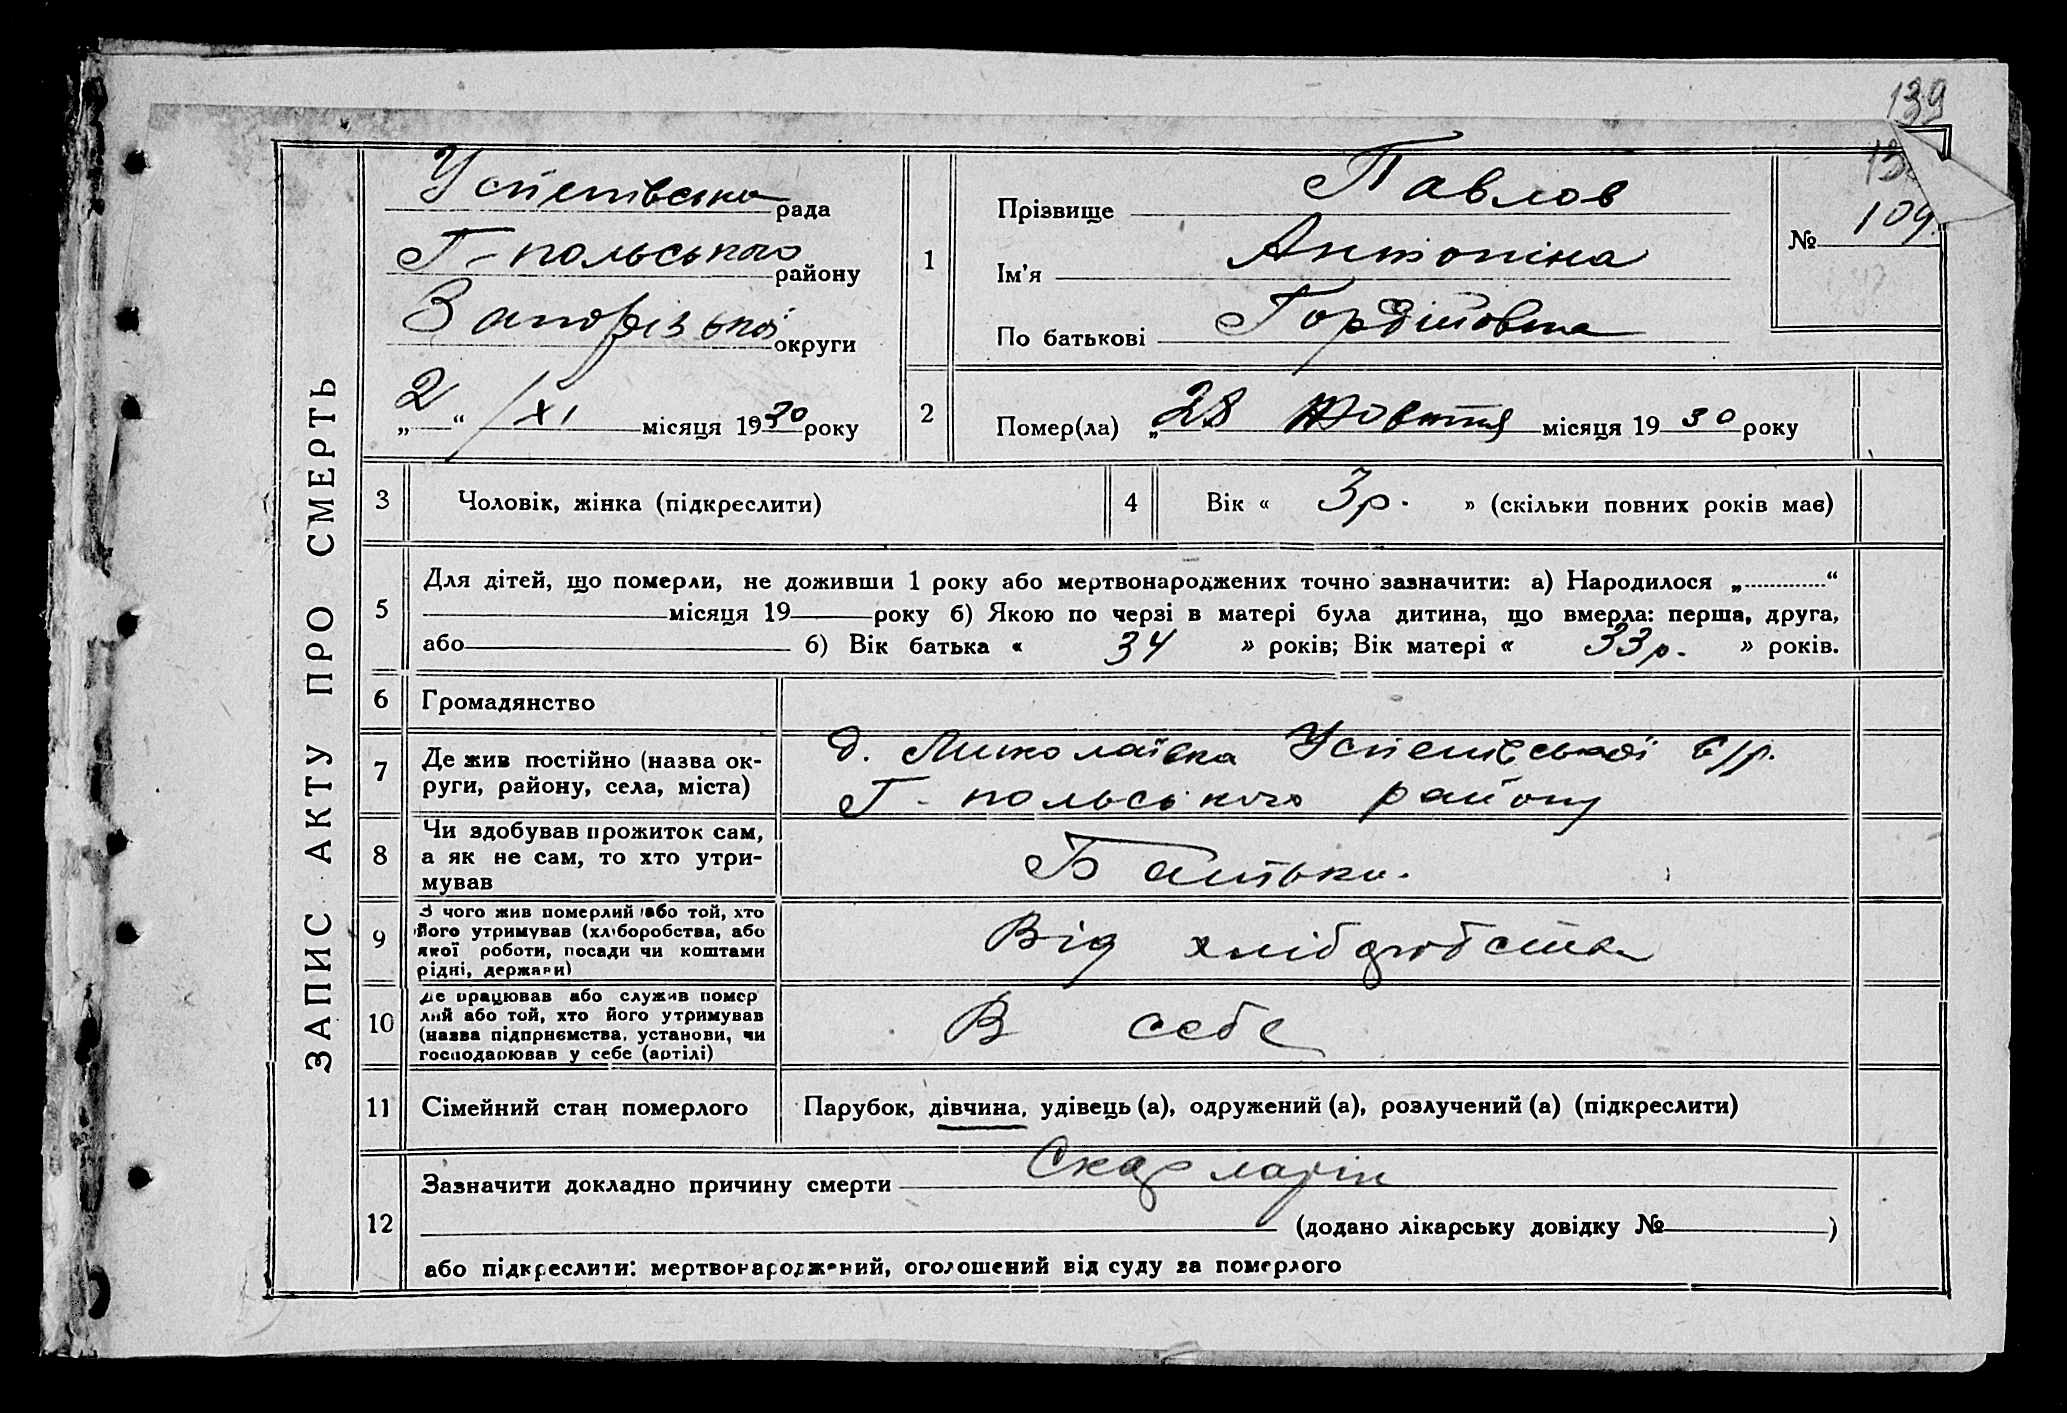 139
13
ЗАПИС АКТУ ПРО СМЕРТЬ
Успенівська рада
Г-польського району
Запорізької округи
„2“ XI місяця 1930 року
1
Прізвище Павлов
Ім'я Антоніна
По батькові Гордіївна
№ 109.
2
Помер(ла) „28 Жовтня місяця 1930 року
3
Чоловік, жінка (підкреслити)
4
Вік « 3р. » (скільки повних років має)
5
Для дітей, що померли, не доживши 1 року або мертвонароджених точно зазначити: а) Народилося „ “
місяця 19 року б) Якою по черзі в матері була дитина, що вмерла: перша, друга,
або б) Вік батька « 34 » років; Вік матері « 33р. » років.
6
Громадянство
7
Де жив постійно (назва ок-
руги, району, села, міста)
д. Миколаївка Успенівської с/р.
Г-польського району
8
Чи здобував прожиток сам,
а як не сам, то хто утри-
мував
Батько.
9
З чого жив померлий або той, хто
його утримував (хліборобства, або
якої роботи, посади чи коштами
рідні, держави)
Від хліборобства
10
Де працював або служив помер
лий або той, хто його утримував
(назва підприємства, установи, чи
господарював у себе (артілі)
В себе
11
Сімейний стан померлого
Парубок, дівчина, удівець (а), одружений (а), розлучений (а) (підкреслити)
12
Зазначити докладно причину смерти Скарлатін
(додано лікарську довідку № )
або підкреслити: мертвонароджений, оголошений від суду за померлого